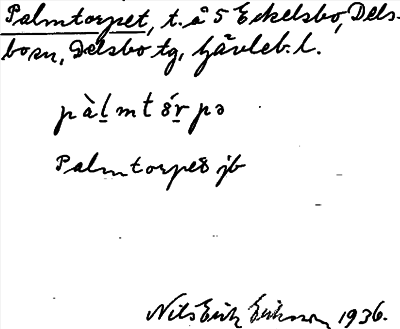 Palmtorpet, t. å 5 Eckelsbo, Dels-
bo sn, Delsbo tg, Gävleb. l.
pàl̲mtɜ́r̲pə
Palmtorpet jb
Nils Erik Erikson 1936.